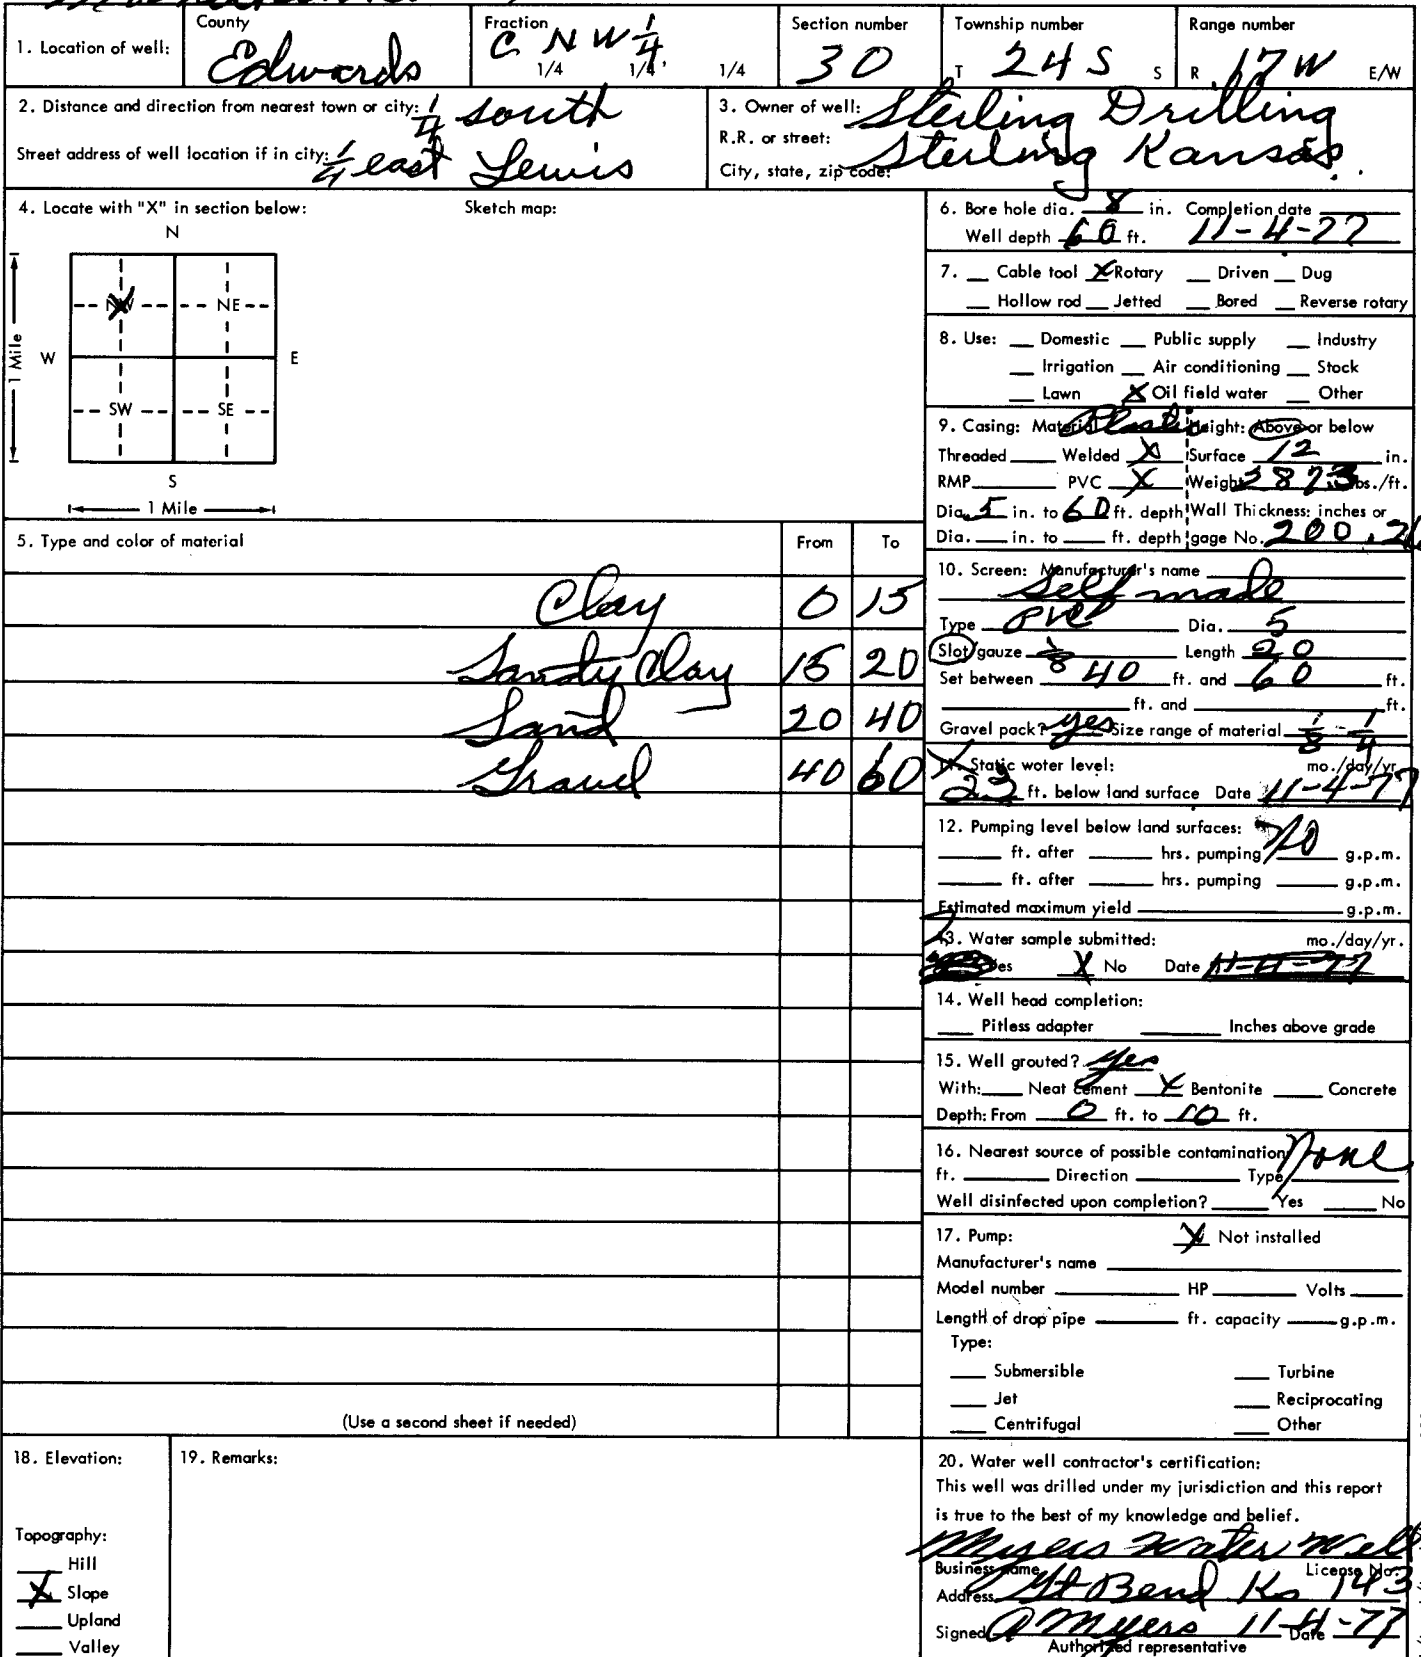 County
Fraction
Section number
Township number
Range number
1. Location of well:
Edwards
C NW 1/4
1/4 1/4 1/4
30
T 24 S S
R 17 W E/W
2. Distance and direction from nearest town or city: 1/4 south
Street address of well location if in city: 1/4 east Lewis
3. Owner of well: Sterling Drilling
R.R. or street:
City, state, zip code: Sterling Kansas
4. Locate with "X" in section below:
Sketch map:
N
NW X NE
W E
1 Mile
SW SE
S
1 Mile
5. Type and color of material From To
Clay 0 15
Sandy Clay 15 20
Sand 20 40
Gravel 40 60
(Use a second sheet if needed)
6. Bore hole dia. 8 in. Completion date
Well depth 60 ft. 11-4-77
7. Cable tool X Rotary Driven Dug
Hollow rod Jetted Bored Reverse rotary
8. Use: Domestic Public supply Industry
Irrigation Air conditioning Stock
Lawn X Oil field water Other
9. Casing: Material Plastic Height: Above or below
Threaded Welded X Surface 12 in.
RMP PVC X Weight lbs./ft.
Dia. 5 in. to 60 ft. depth Wall Thickness: inches or
Dia. in. to ft. depth gage No. 200
10. Screen: Manufacturer's name
Self made
Type PVC Dia. 5
Slot/gauze 1/8 Length 20
Set between 40 ft. and 60 ft.
ft. and ft.
Gravel pack? yes Size range of material 1/8 - 1/4
11. Static water level: mo./day/yr.
ft. below land surface Date 11-4-77
12. Pumping level below land surfaces:
ft. after hrs. pumping g.p.m.
ft. after hrs. pumping g.p.m.
Estimated maximum yield g.p.m.
13. Water sample submitted: mo./day/yr.
Yes X No Date 11-4-77
14. Well head completion:
Pitless adapter Inches above grade
15. Well grouted? yes
With: Neat cement X Bentonite Concrete
Depth: From 0 ft. to 10 ft.
16. Nearest source of possible contamination none
ft. Direction Type
Well disinfected upon completion? Yes No
17. Pump: X Not installed
Manufacturer's name
Model number HP Volts
Length of drop pipe ft. capacity g.p.m.
Type:
Submersible Turbine
Jet Reciprocating
Centrifugal Other
18. Elevation:
Topography:
Hill
X Slope
Upland
Valley
19. Remarks:
20. Water well contractor's certification:
This well was drilled under my jurisdiction and this report
is true to the best of my knowledge and belief.
Myers Water Well
Business name License No.
Address Gt Bend Ks 143
Signed Myers 11-4-77 Date
Authorized representative